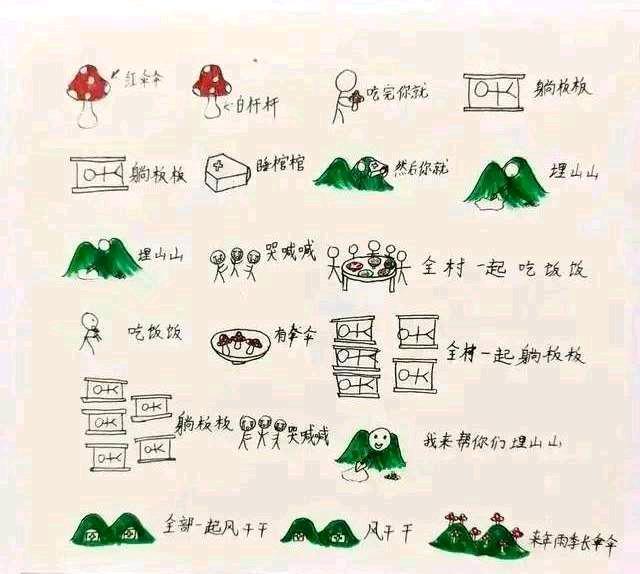 红伞伞 白杆杆 吃完你就 躺板板
躺板板 睡棺棺 然后你就 埋山山
埋山山 哭喊喊 全村一起吃饭饭
吃饭饭 有伞伞 全村一起躺板板
躺板板 哭喊喊 我来帮你们埋山山
全部一起风干干 风干干 来年雨季长伞伞